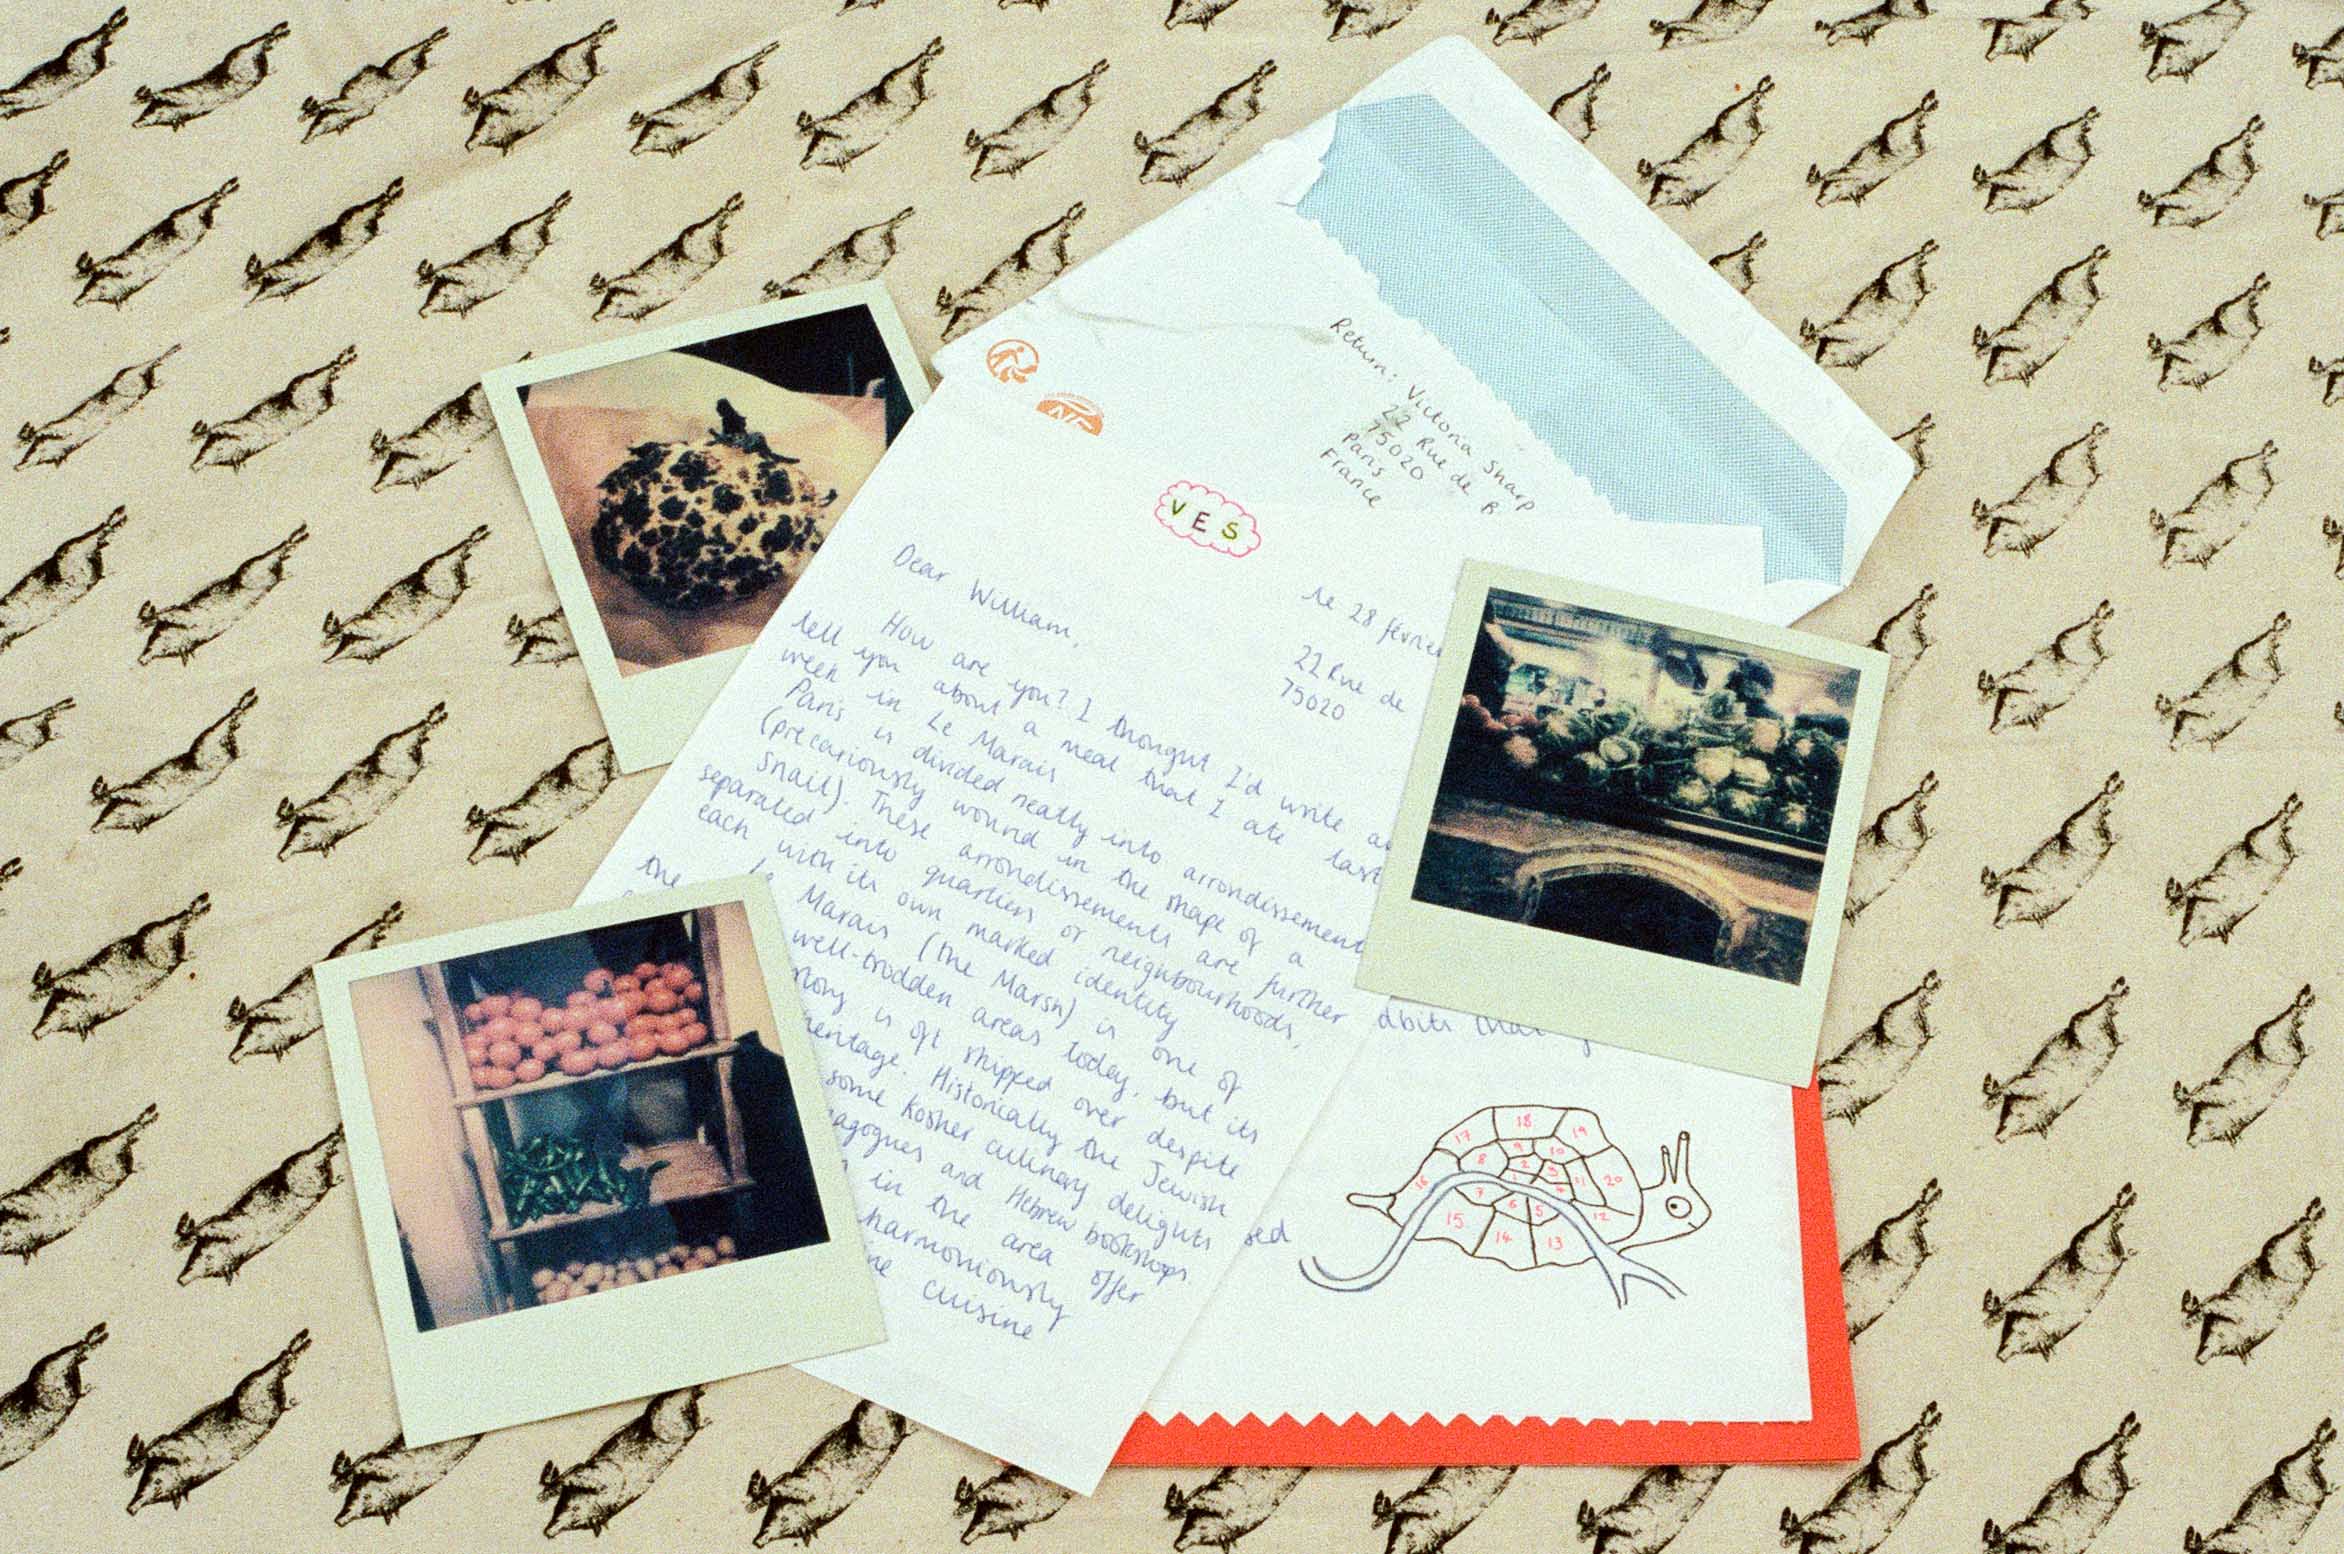 Return: Victoria Sharp
22 Rue de R
75020
Paris
France
NF
VES
le 28 février
22 Rue de
75020
Dear William,
How are you? I thought I'd write a
tell you about a meal that I ate last
week in Le Marais
Paris is divided neatly into arrondissement
(precariously wound in the shape of a
snail). These arrondissements are further
separated into quartiers or neighbourhoods,
each with its own marked identity
the Marais (the Marsh) is one of
well-trodden areas today, but its
is oft skipped over despite
Historically the Jewish
some kosher culinary delights
agogues and Hebrew bookshops
in the area offer
harmoniously
cuisine
sed
17 18 19
9 10
16 8 2 3 11 20
7 1 4
15 6 5 12
14 13